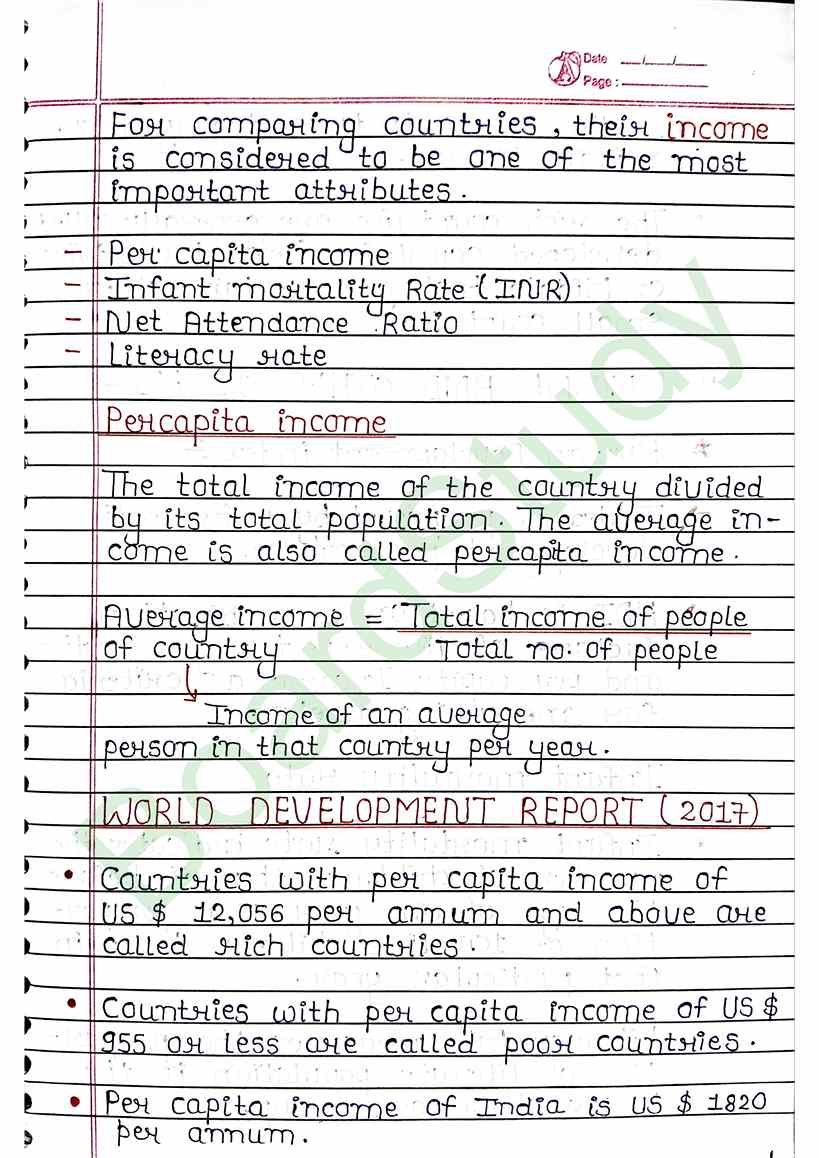 Date __/__/__
Page :
For comparing countries, their income
is considered to be one of the most
important attributes.
- Per capita income
- Infant mortality Rate (INR)
- Net Attendance Ratio
- Literacy rate
Percapita income
The total income of the country divided
by its total population. The average in-
come is also called percapita income.
Average income = Total income of people
of country Total no. of people
Income of an average
person in that country per year.
WORLD DEVELOPMENT REPORT (2017)
• Countries with per capita income of
US $ 12,056 per annum and above are
called rich countries.
• Countries with per capita income of US $
955 or less are called poor countries.
• Per capita income of India is US $ 1820
per annum.
BoardStudy